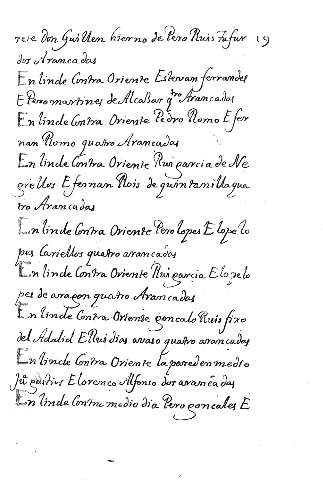 Don Guillen hierno de Pero Ruis 19
dos Arancadas
En linde Contra Oriente Estevan ferrandes
E Pero martines de Alcassar qtro Arancadas
En linde Contra Oriente Pedro Romo E fer
nan Romo quatro Arancadas
En linde Contra Oriente Rui garcia de Ne
grellos E fernan Rois de quintanilla qua
tro Arancadas
En linde Contra Oriente Pero lopes E lope lo
pes Cariellos quatro arancadas
En linde Contra Oriente Rui garcia E lope lo
pes de aragon quatro Arancadas
En linde Contra Oriente goncalo Ruis fixo
del Adalid E Rui dias quatro arancadas
En linde Contra Oriente la pared en medio
E lorenco Alfonso dos arancadas
En linde Contra medio dia Pero goncales E